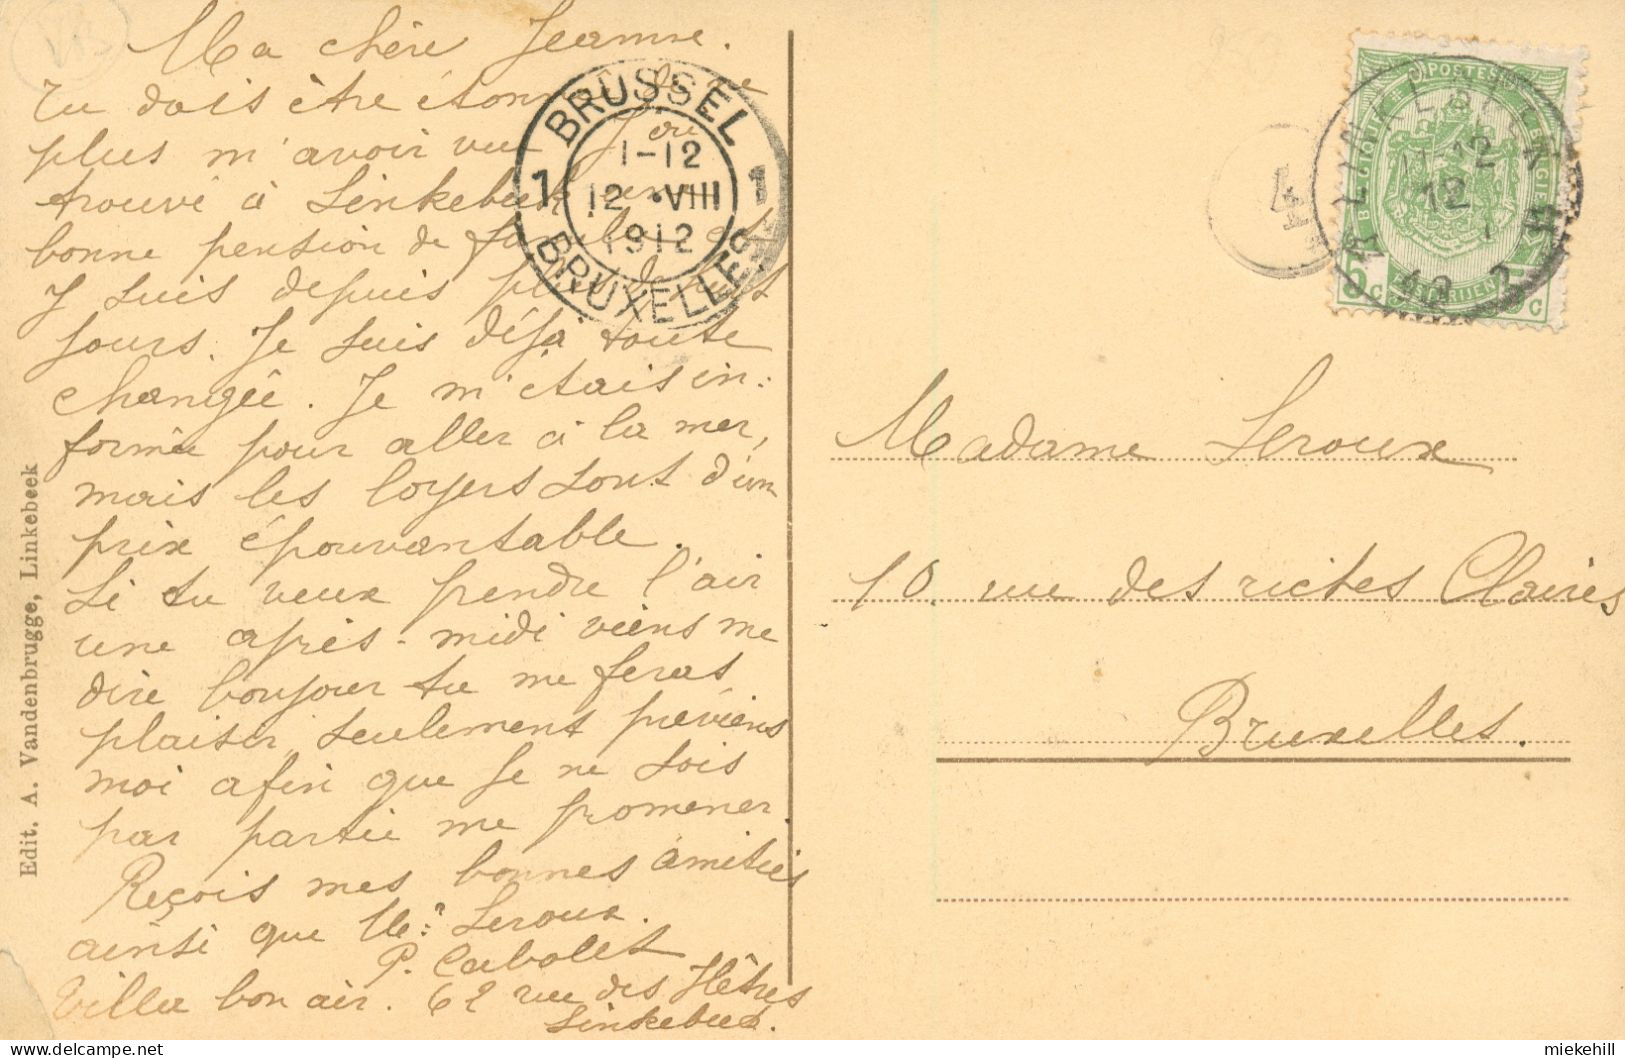 Ma chère Jeanne.
Tu dois être étonnée de ne
plus m'avoir vu J'ai
trouvé à Linkebeek une
bonne pension de famille et
j suis depuis plus de huit
jours. Je suis déjà toute
changée. Je m'étais in-
formée pour aller à la mer,
mais les loyers sont d'un
prix épouvantable.
Si tu veux prendre l'air
une après-midi viens me
dire bonjour tu me feras
plaisir, seulement préviens
moi afin que je ne sois
par partie me promener.
Reçois mes bonnes amitiés
ainsi que Mr Leroux.
P. Cabolet
Villa bon air. 62 rue des Hêtres
Linkebeek.
Edit. A. Vandenbrugge, Linkebeek
BRUSSEL
1-12
1 12 • VIII 1
1912
BRUXELLES
POSTES
BELGIQUE
BELGIË
5 c
5 c
12
12
4
Madame Leroux
10. rue des riches Claires
Bruxelles.
miekehill